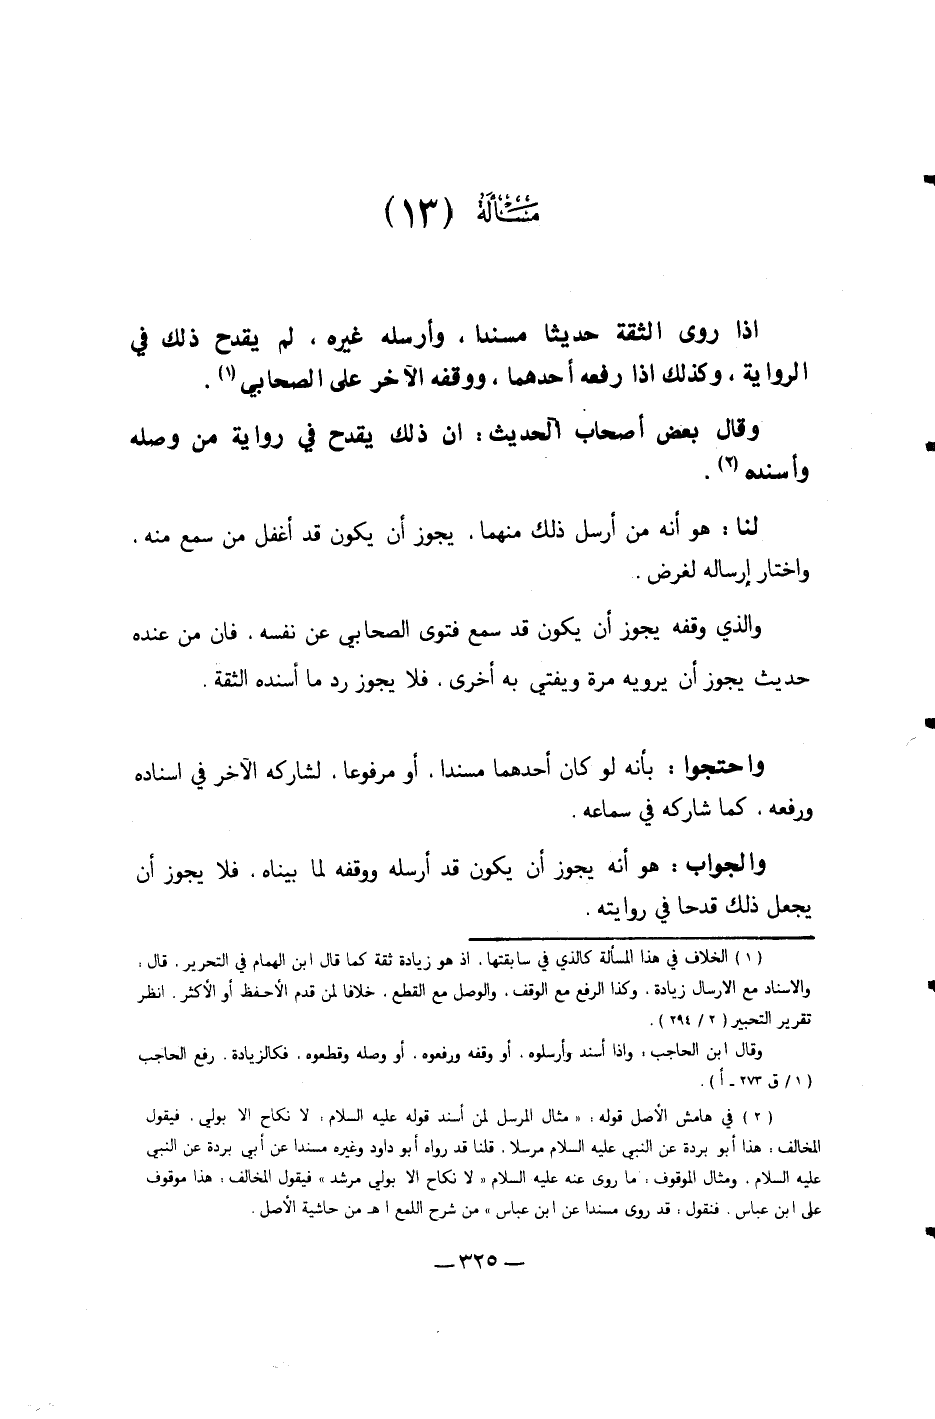 مسألة (١٣)
اذا روى الثقة حديثا مسندا ، وأرسله غيره ، لم يقدح ذلك في
الرواية ، وكذلك اذا رفعه أحدهما ، ووقفه الآخر على الصحابي (١) .
وقال بعض أصحاب الحديث : ان ذلك يقدح في رواية من وصله
وأسنده (٢) .
لنا : هو أنه من أرسل ذلك منهما ، يجوز أن يكون قد أغفل من سمع منه ،
واختار إرساله لغرض .
والذي وقفه يجوز أن يكون قد سمع فتوى الصحابي عن نفسه ، فان من عنده
حديث يجوز أن يرويه مرة ويفتي به أخرى ، فلا يجوز رد ما أسنده الثقة .
واحتجوا : بأنه لو كان أحدهما مسندا ، أو مرفوعا ، لشاركه الآخر في اسناده
ورفعه ، كما شاركه في سماعه .
والجواب : هو أنه يجوز أن يكون قد أرسله ووقفه لما بيناه ، فلا يجوز أن
يجعل ذلك قدحا في روايته .
(١) الخلاف في هذا المسألة كالذي في سابقتها ، اذ هو زيادة ثقة كما قال ابن الهمام في التحرير ، قال :
والاسناد مع الارسال زيادة ، وكذا الرفع مع الوقف ، والوصل مع القطع ، خلافا لمن قدم الأحفظ أو الأكثر . انظر
تقرير التحبير (٢ / ٢٩٤) .
وقال ابن الحاجب : واذا أسند وأرسلوه ، أو وقفه ورفعوه ، أو وصله وقطعوه ، فكالزيادة . رفع الحاجب
(١ / ق ٢٧٣ ـ أ) .
(٢) في هامش الأصل قوله : « مثال المرسل لمن أسند قوله عليه السلام : لا نكاح الا بولي ، فيقول
المخالف : هذا أبو بردة عن النبي عليه السلام مرسلا ، قلنا قد رواه أبو داود وغيره مسندا عن أبي بردة عن النبي
عليه السلام ، ومثال الموقوف : ما روى عنه عليه السلام « لا نكاح الا بولي مرشد » فيقول المخالف : هذا موقوف
على ابن عباس ، فنقول : قد روى مسندا عن ابن عباس » من شرح اللمع ا هـ من حاشية الأصل .
— ٣٢٥ —